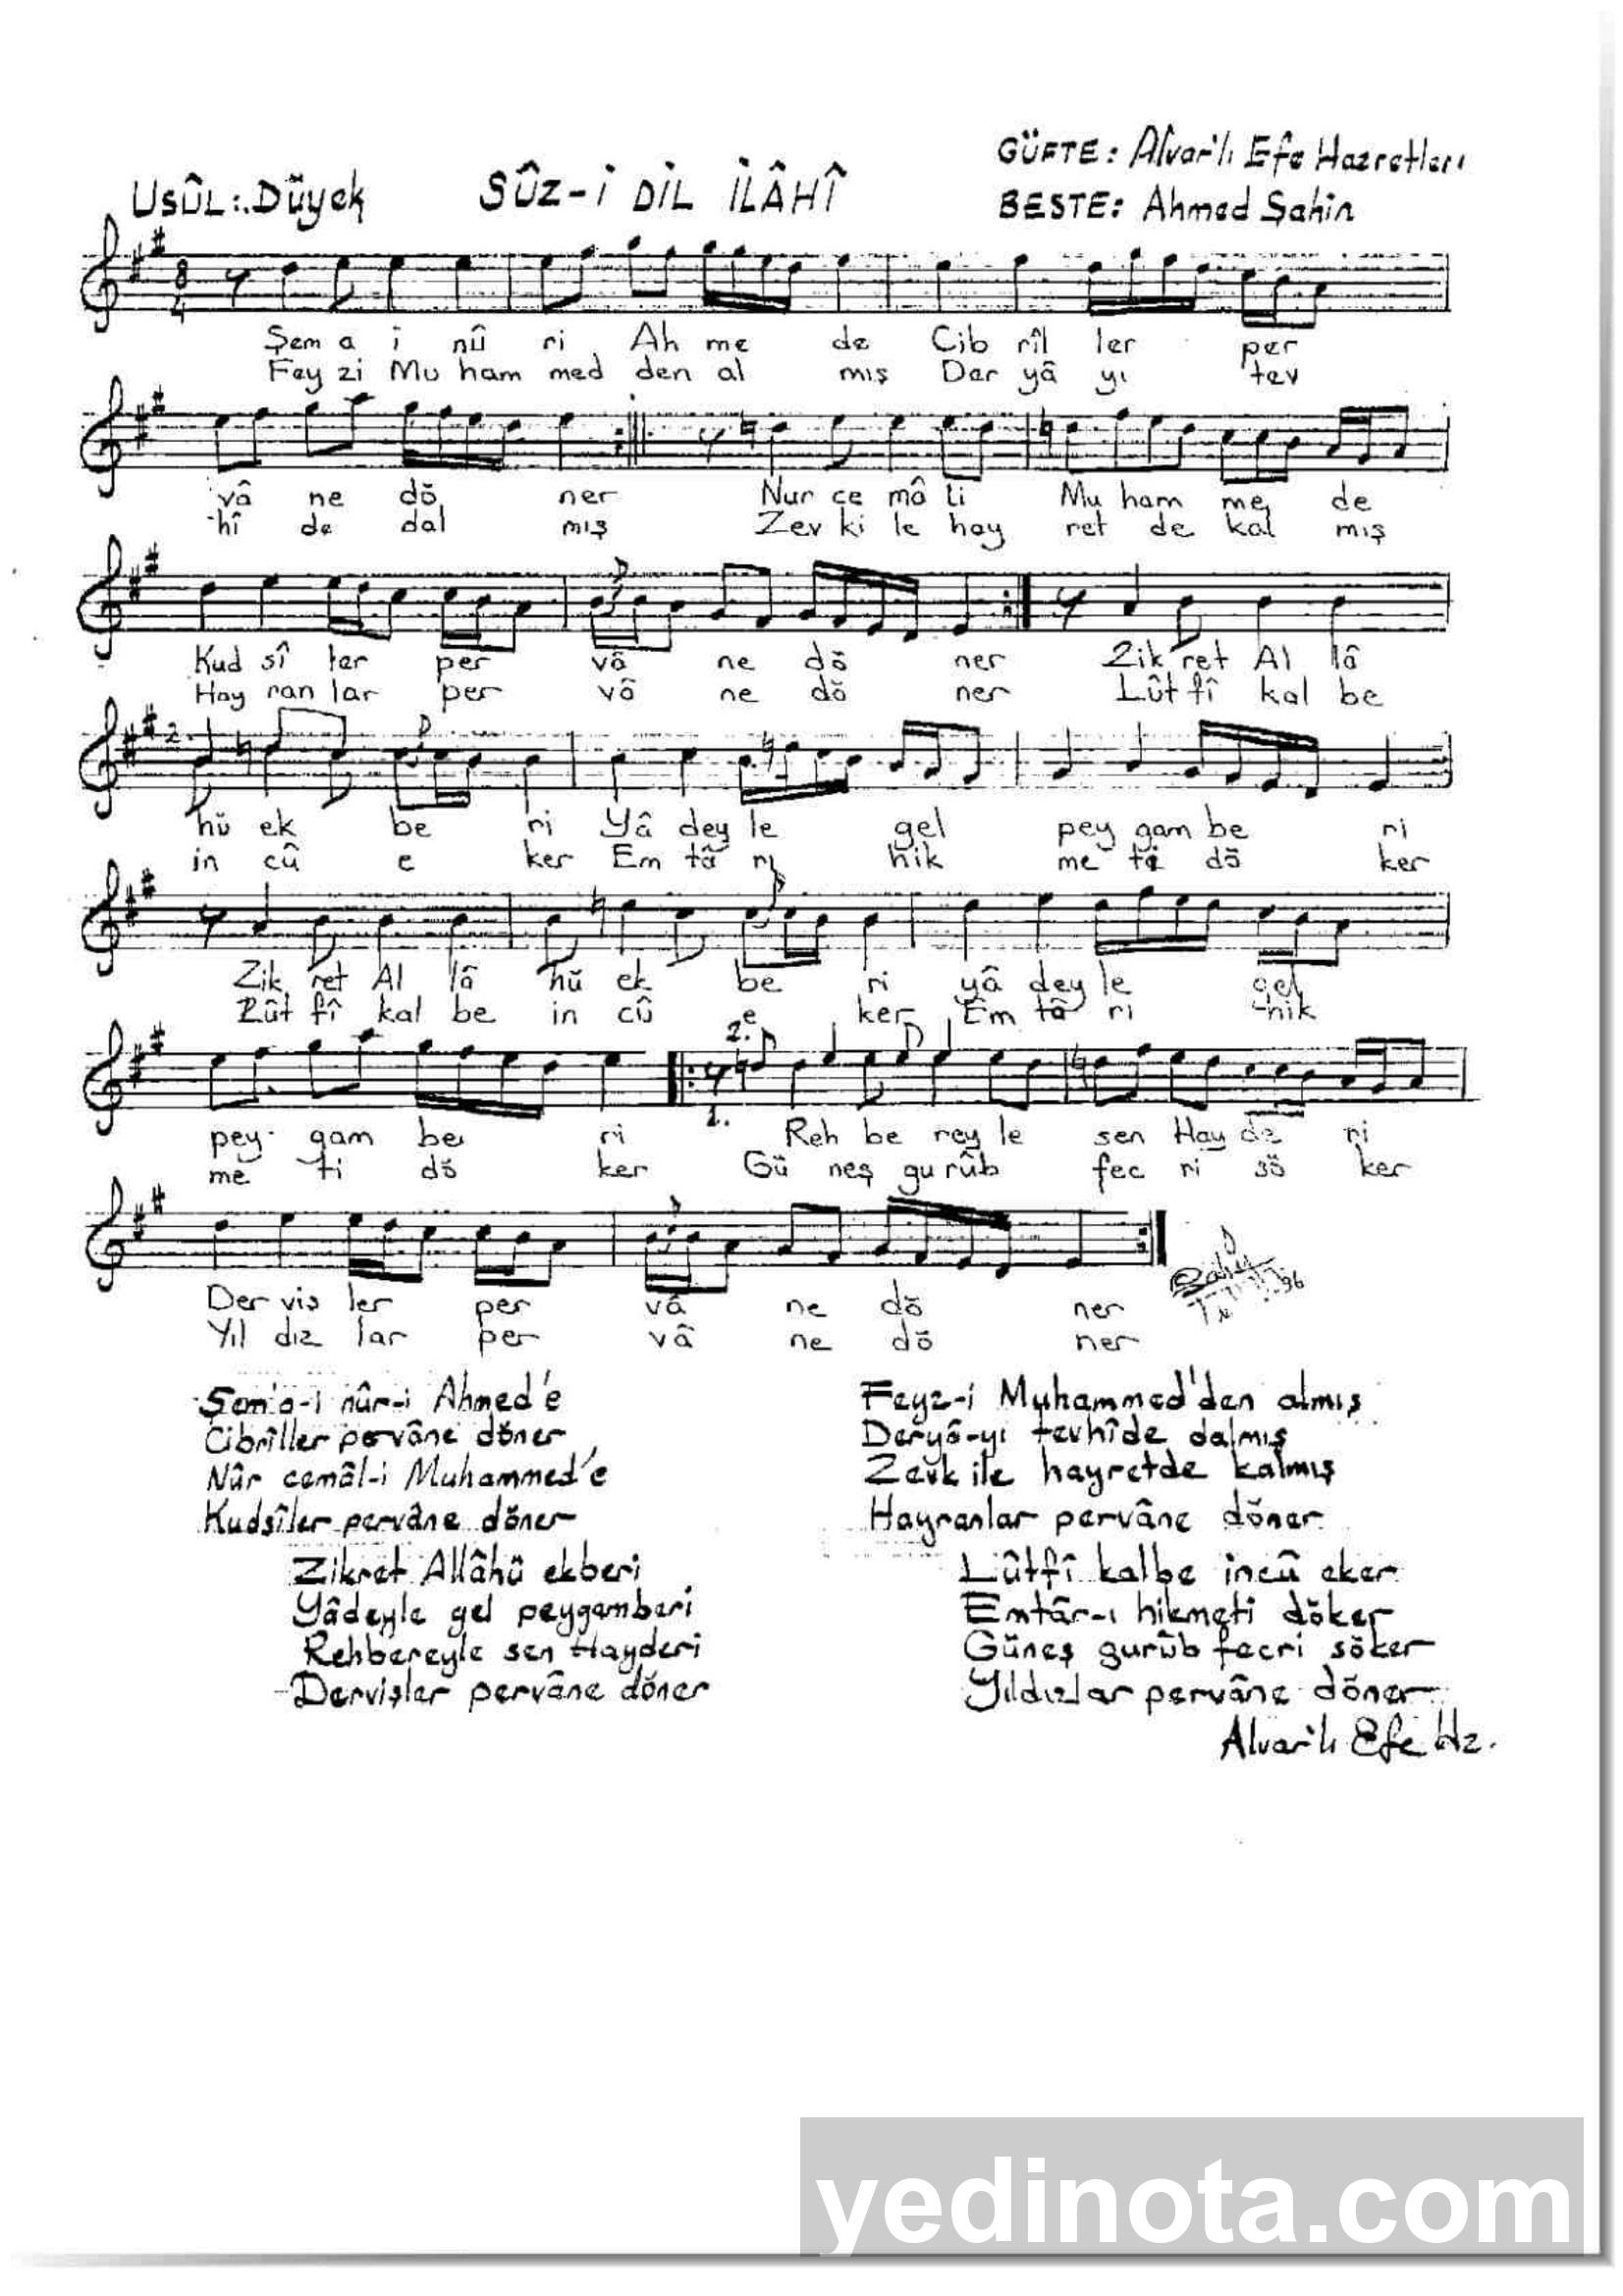 GÜFTE: Alvar'lı Efe Hazretleri
USÛL: Düyek SÛZ-İ DİL İLÂHÎ
BESTE: Ahmed Şahin
8 4
Şem a i nû ri Ah me de Cib rîl ler per
Fey zi Mu ham med den al mış Der yâ yı tev
vâ ne dö ner Nur ce mâ li Mu ham me de
hî de dal mış Zev ki le hay ret de kal mış
Kud sî ler per vâ ne dö ner Zik ret Al lâ
Hay ran lar per vâ ne dö ner Lût fî kal be
2.
hü ek be ri Yâ dey le gel pey gam be ri
in cû e ker Em tâ rı hik me ti dö ker
Zik ret Al lâ hü ek be ri yâ dey le gel
Lût fî kal be in cû e ker Em tâ ri hik
2.
1.
pey gam be ri Reh be rey le sen Hay de ri
me ti dö ker Gü neş gu rûb fec ri sö ker
Der viş ler per vâ ne dö ner
Yıl dız lar per vâ ne dö ner
96
Şem'a-i nûr-i Ahmed'e
Cibrîller pervâne döner
Nûr cemâl-i Muhammed'e
Kudsîler pervâne döner
Zikret Allâhü ekberi
Yâdeyle gel peygamberi
Rehbereyle sen Hayderi
Dervişler pervâne döner
Feyz-i Muhammed'den almış
Deryâ-yı tevhîde dalmış
Zevk ile hayretde kalmış
Hayranlar pervâne döner
Lûtfî kalbe incû eker
Emtâr-ı hikmeti döker
Güneş gurûb fecri söker
Yıldızlar pervâne döner
Alvar'lı Efe Hz.
yedinota.com